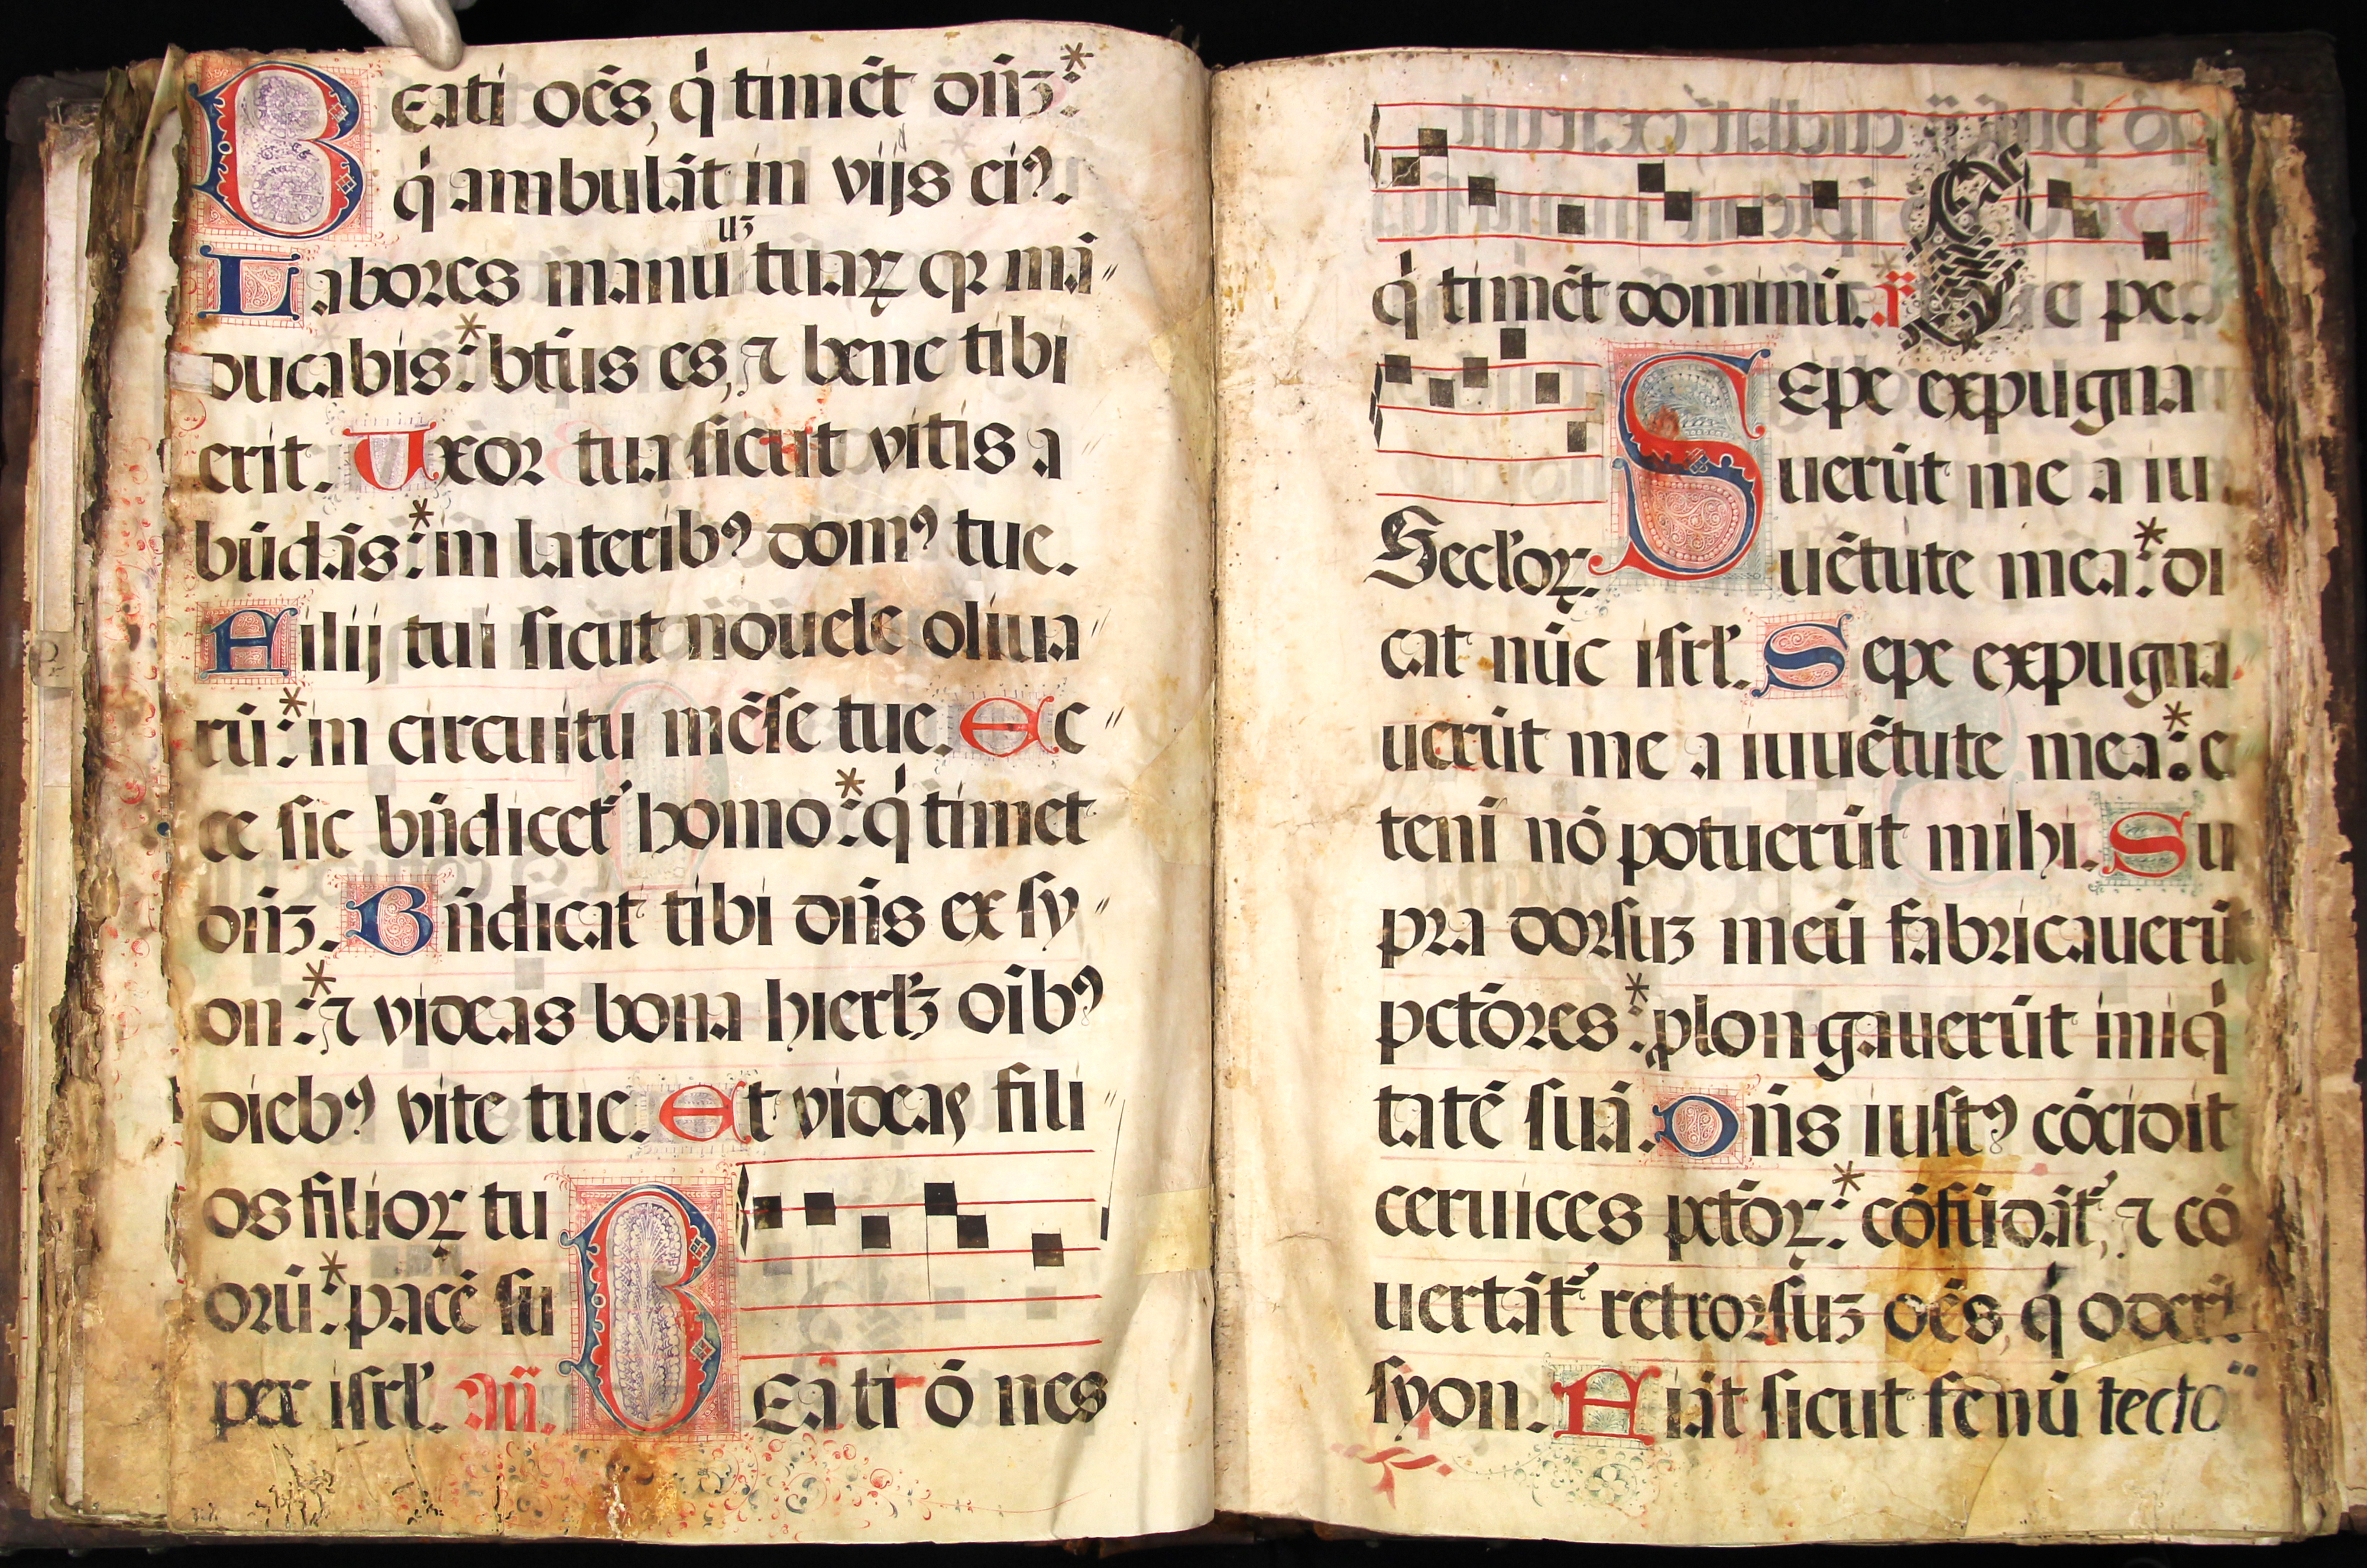 Beati oēs, q̇ timēt dn̄ꝫ:*
q̇ ambulāt in vijs eiꝰ.
uꝫ
Labores manu tuaꝝ qꝛ mā〃
ducabis:* bt̄us es, ⁊ bene tibi
erit. Uxor tua sicut vitis a
būdās:* in lateribꝰ domꝰ tue.
Filij tui sicut nouele oliua〃
rū:* in circuitu mēse tue. Ec〃
ce sic bn̄dicet᷑ homo:* q̇ timet
dn̄ꝫ. Bn̄dicat tibi dn̄s ex sy〃
on:* ⁊ videas bona hierlꝫ oībꝰ
diebꝰ vite tue. Et videas fili
os filioꝝ tu
orū:* pacē su
per isrl̓. An̄.
Beati ō nes
q̇ timēt dominū. ꝟ. pē.
Sepe expugna
uerūt me a iu
Secl̓oꝝ.
uētute mea:* di
cat nūc isrl̓. Sepe expugna
uerūt me a iuuētute mea:* e
teni nō potuerūt mihi. Su
pra dorsuꝫ meū fabricauerūt
pctōres:* ꝓlongauerūt iniq̇
tatē suā. Dn̄s iustꝰ cōcidit
ceruices pctōꝝ:* cōfūdāt᷑, ⁊ cō
uertāt᷑ retrorsuꝫ oēs, q̇ oderūt
syon. Fiāt sicut fenū tecto